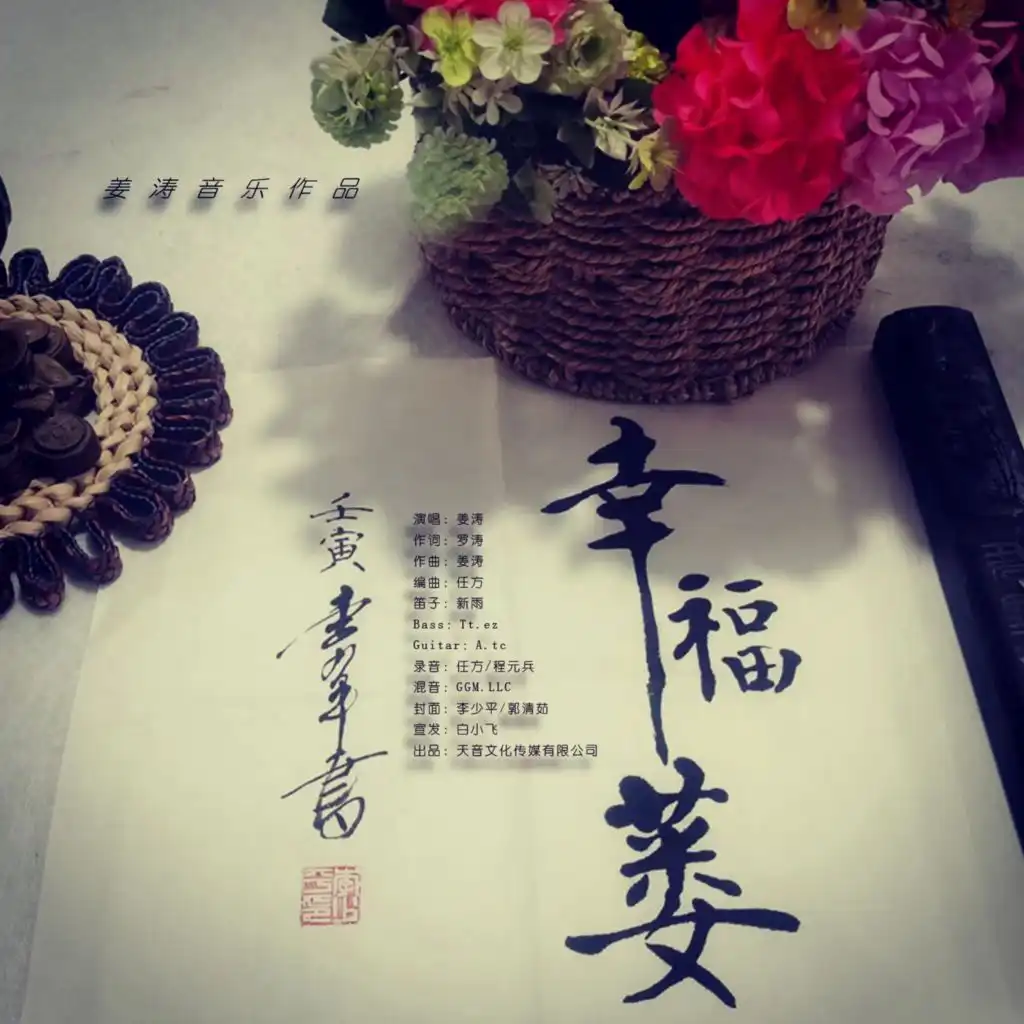 姜涛音乐作品
幸福蒌
演唱：姜涛
作词：罗涛
作曲：姜涛
编曲：任方
笛子：新雨
Bass: Tt.ez
Guitar: A.tc
录音：任方/程元兵
混音：GGM.LLC
封面：李少平/郭清茹
宣发：白小飞
出品：天音文化传媒有限公司
壬寅 李少平书